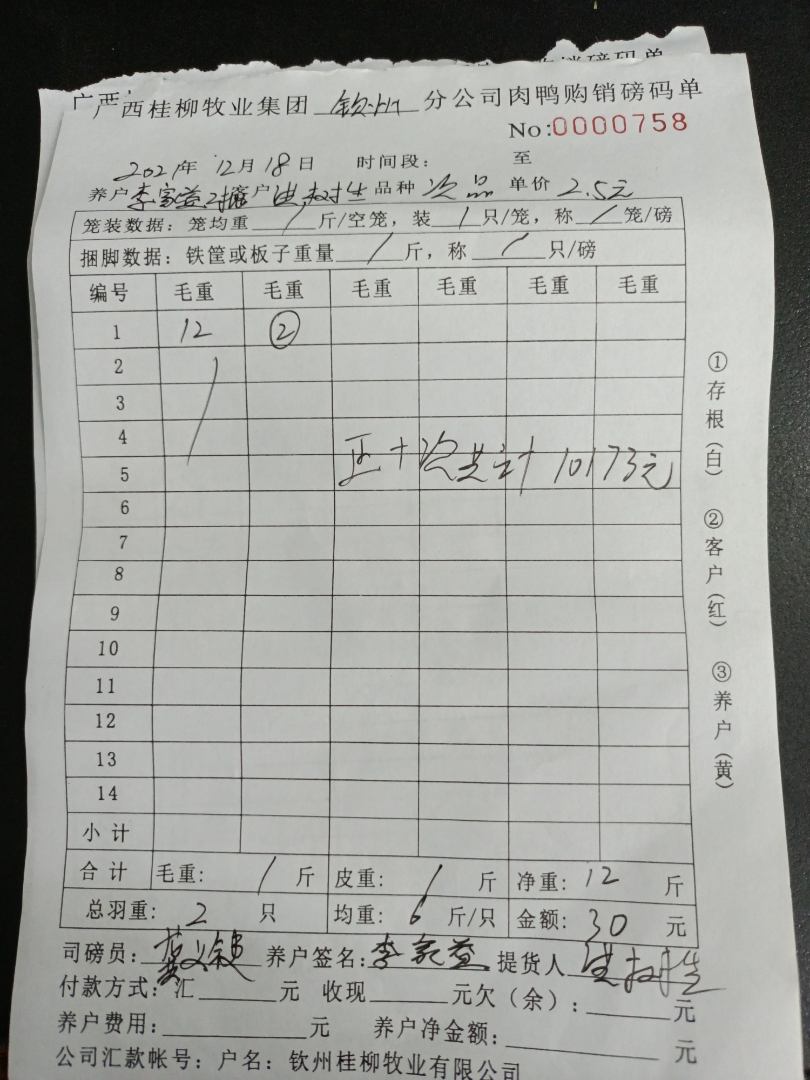 广西桂柳牧业集团 钦州 分公司肉鸭购销磅码单
No:0000758
2021年 12月18日 时间段: 至
养户 李家益 客户 洪树生 品种 次品 单价 2.5元
笼装数据:笼均重 / 斤/空笼,装 / 只/笼,称 / 笼/磅
捆脚数据:铁筐或板子重量 / 斤,称 / 只/磅
编号 毛重 毛重 毛重 毛重 毛重 毛重
1 12 ②
2
3
4
正+次共计 10173元
5
6
7
8
9
10
11
12
13
14
小计
合计 毛重: / 斤 皮重: / 斤 净重: 12 斤
总羽重: 2 只 均重: 6 斤/只 金额: 30 元
司磅员: 养户签名: 李家益 提货人 洪树生
付款方式:汇 元 收现 元欠(余): 元
养户费用: 元 养户净金额: 元
公司汇款帐号:户名:钦州桂柳牧业有限公司
①存根(白) ②客户(红) ③养户(黄)